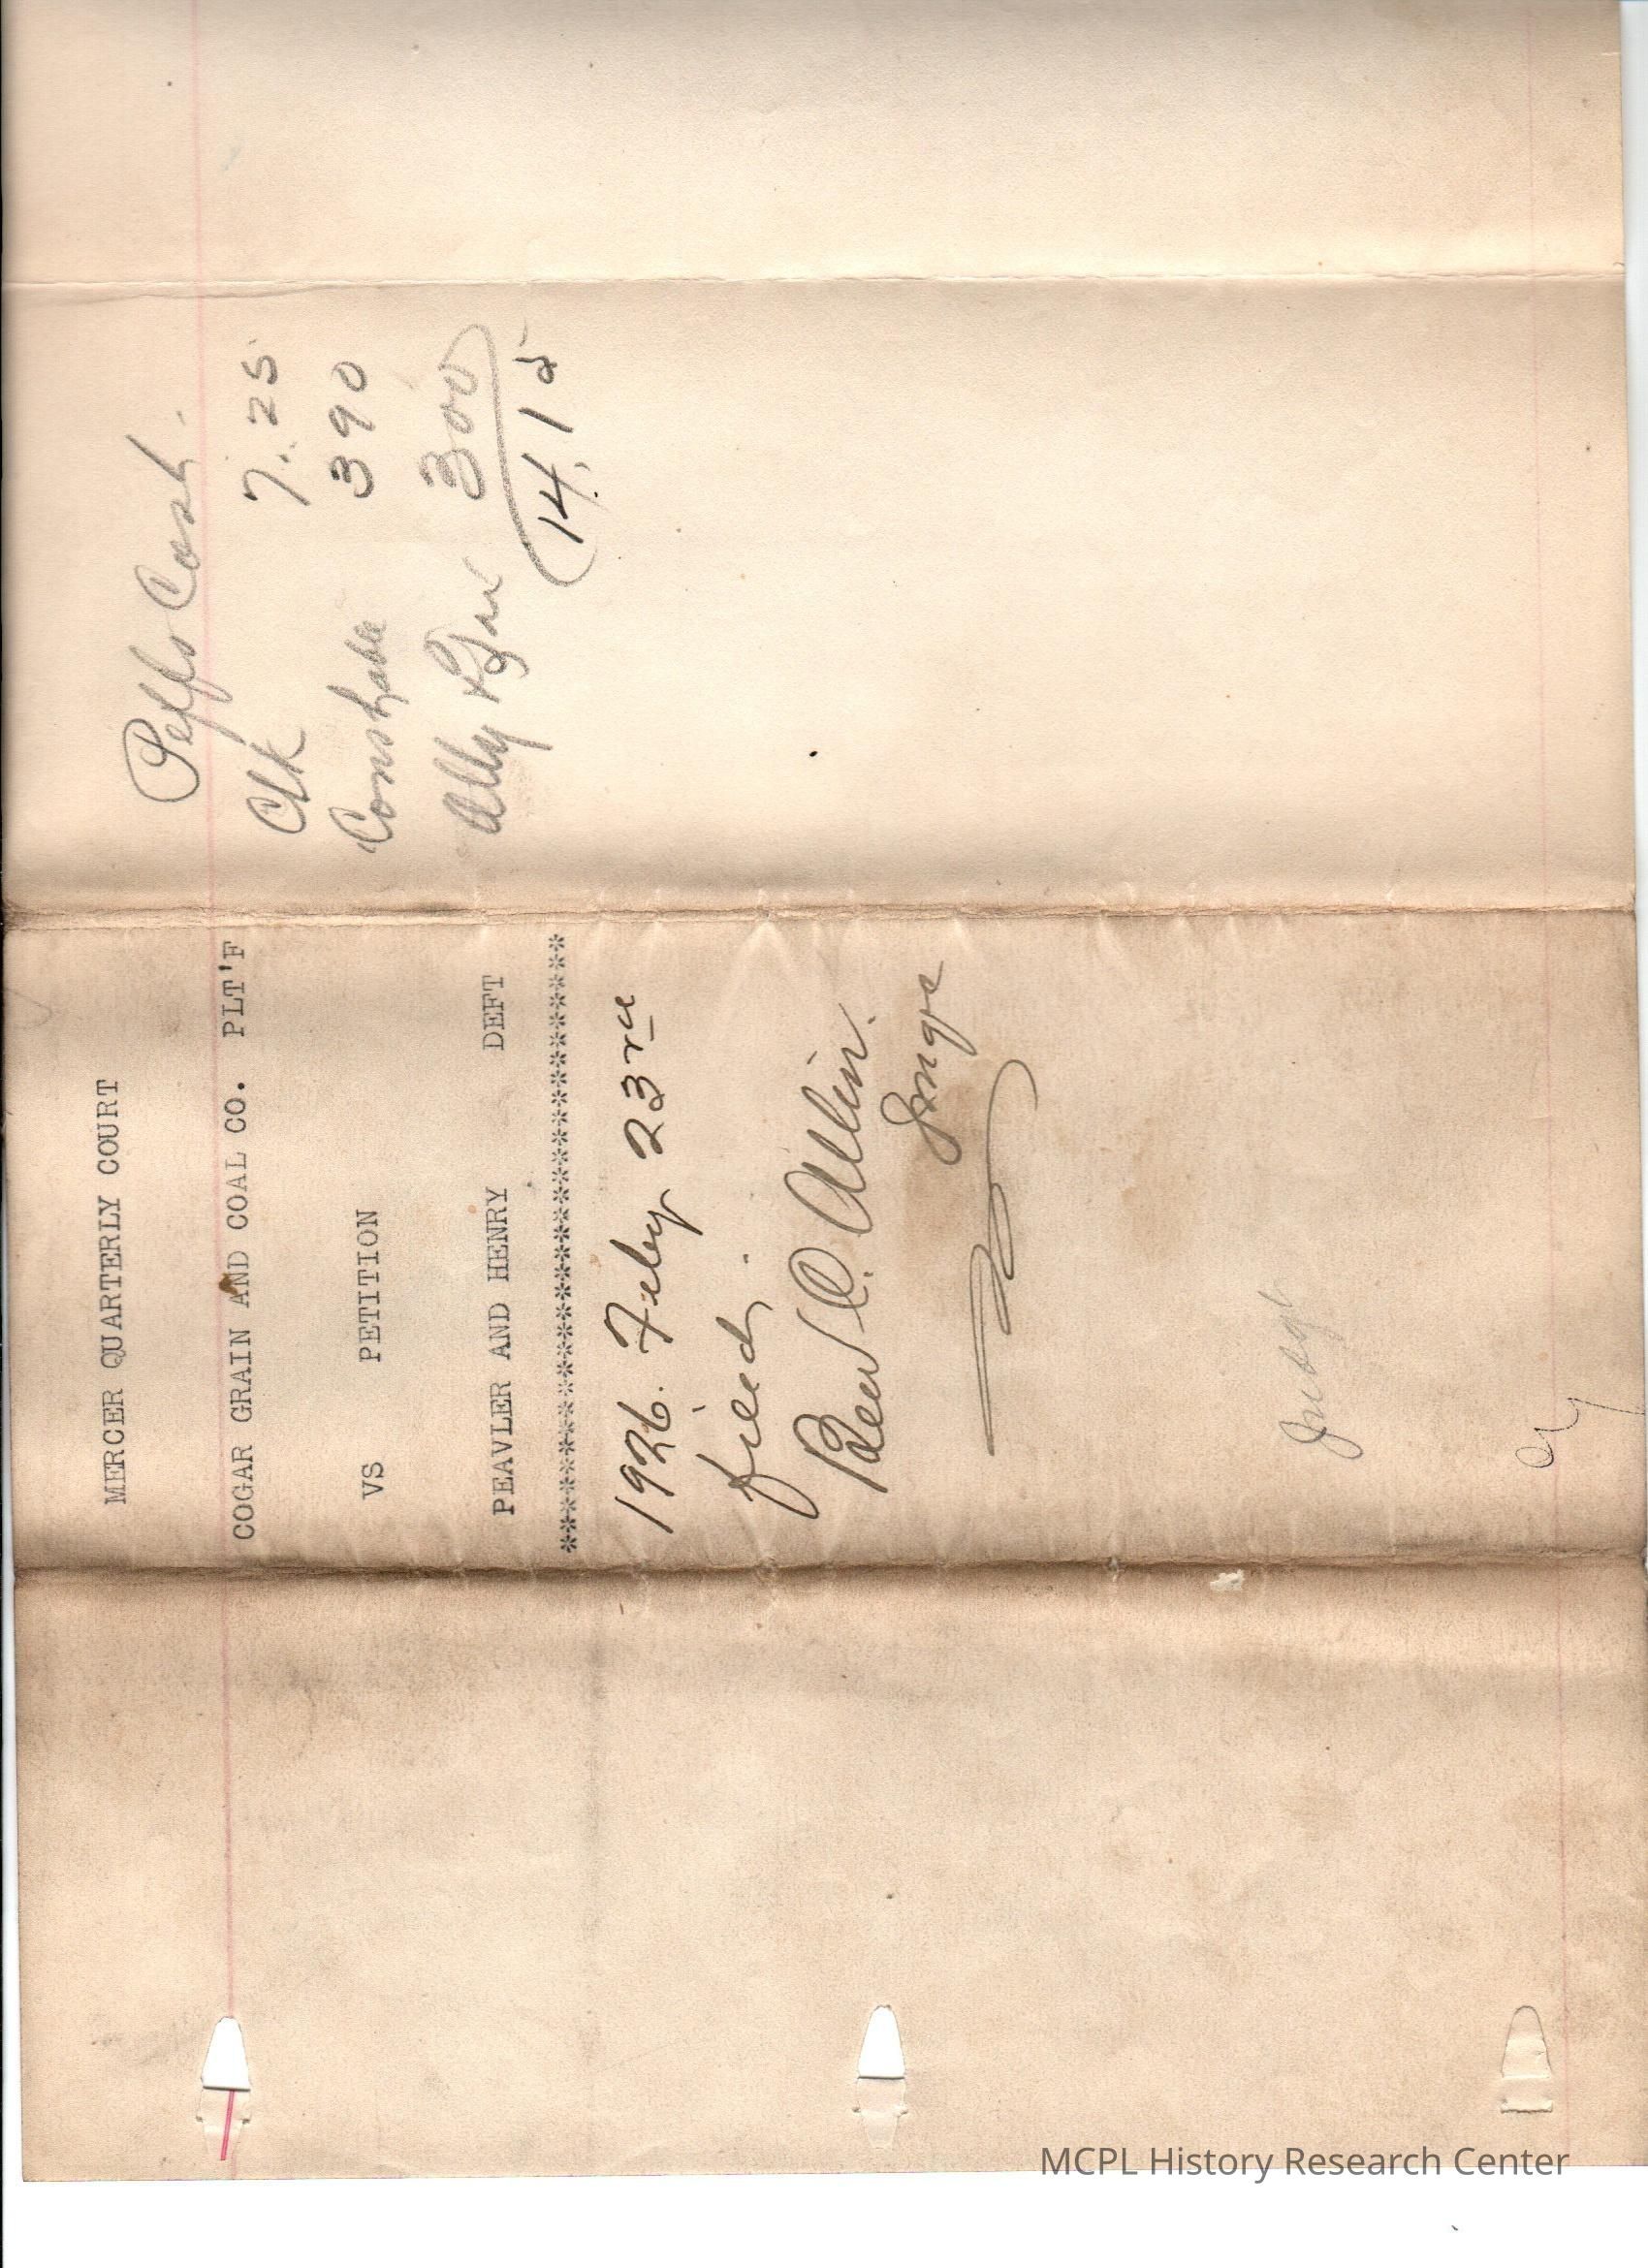 MERCER QUARTERLY COURT
COGAR GRAIN AND COAL CO. PLT'F
VS PETITION
PEAVLER AND HENRY DEFT
************************************
1926. Feby 23rd
filed.
Ben C. Allin.
Judge
Judge
Peffs Cost.
Clk 7.25
Constable 390
Atty 300
14.15
MCPL History Research Center